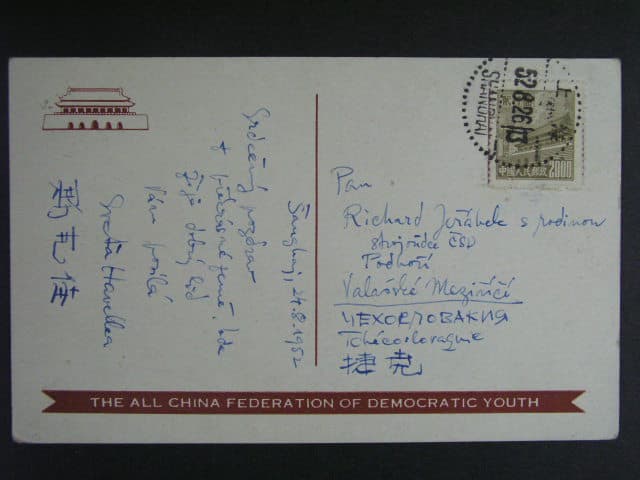 Šanghaj, 24.8.1952
Srdečný pozdrav
z překrásné země, kde
žije dobrý lid
Vám posílá
Sveťa Havelka
斯克佳
上海
52.8.26.17
SHANGHAI
中國人民郵政
2000
Pan
Richard Jeřábek s rodinou
strojvůdce ČSD
Podhoří
Valašské Meziříčí
ЧЕХОСЛОВАКИЯ
Tchécoslovaquie
捷克
THE ALL CHINA FEDERATION OF DEMOCRATIC YOUTH